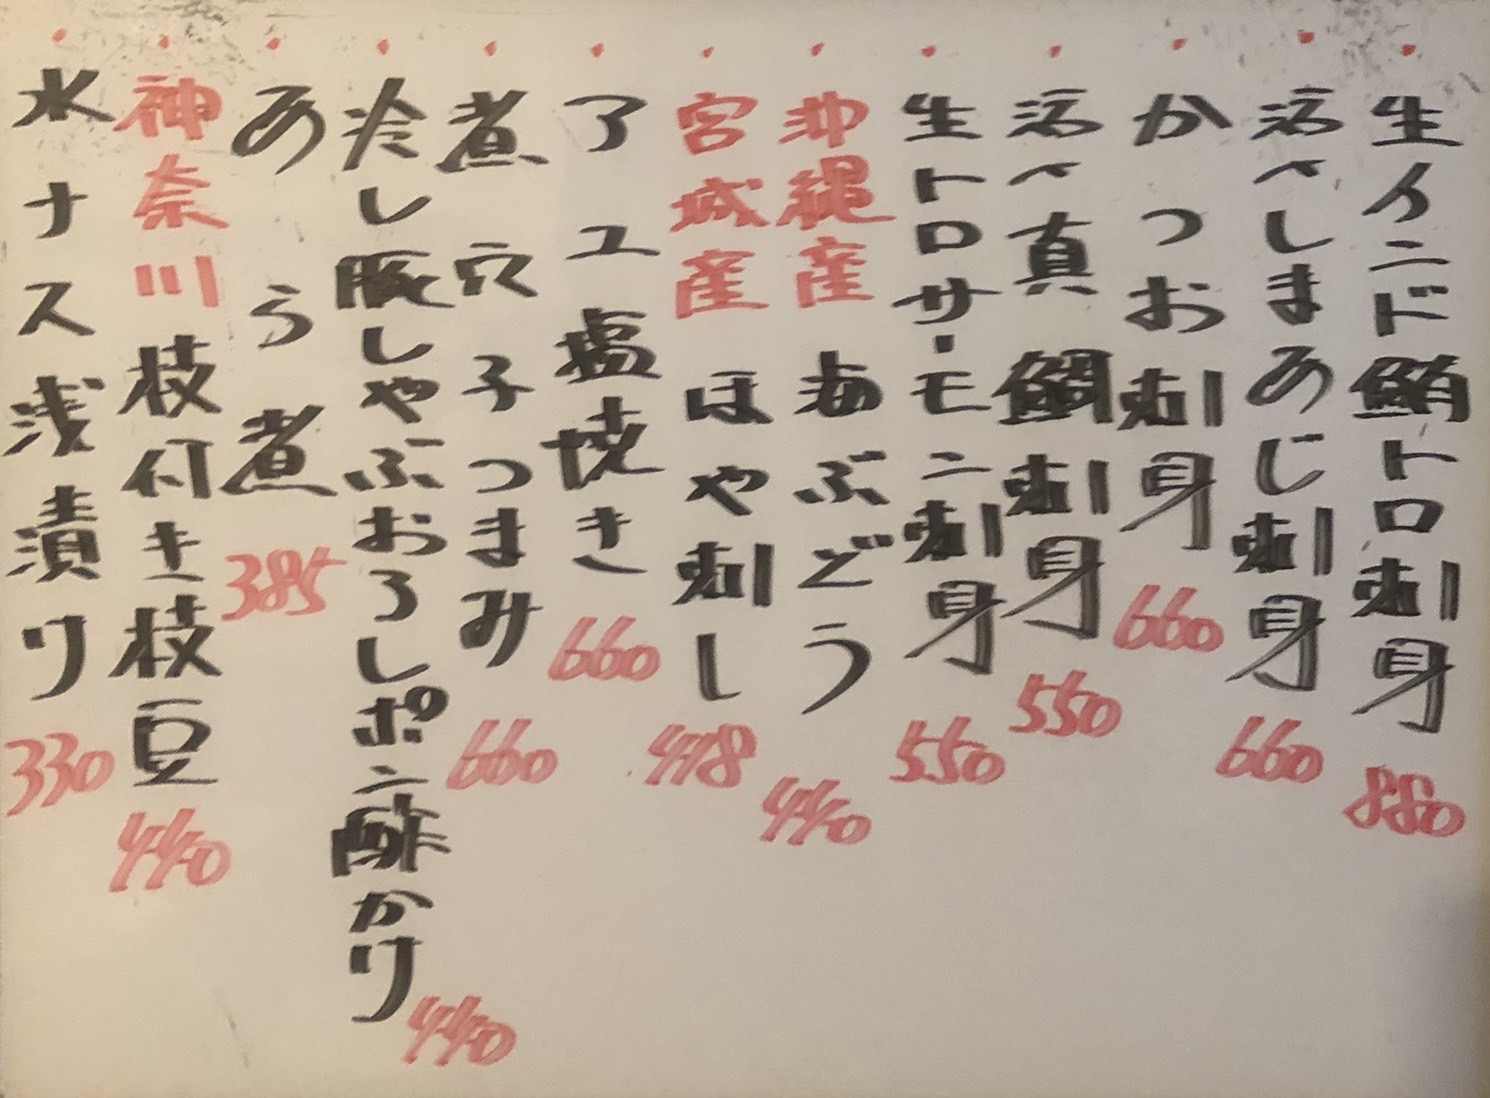 生インド鮪トロ刺身 880
活〆しまあじ刺身 660
かつお刺身 660
活〆真鯛刺身 550
生トロサーモン刺身 550
沖縄産 海ぶどう 440
宮城産 ほや刺し 418
アユ塩焼き 660
煮穴子つまみ 660
冷し豚しゃぶおろしポン酢かけ 440
あら煮 385
神奈川 枝付き枝豆 440
水ナス浅漬け 330